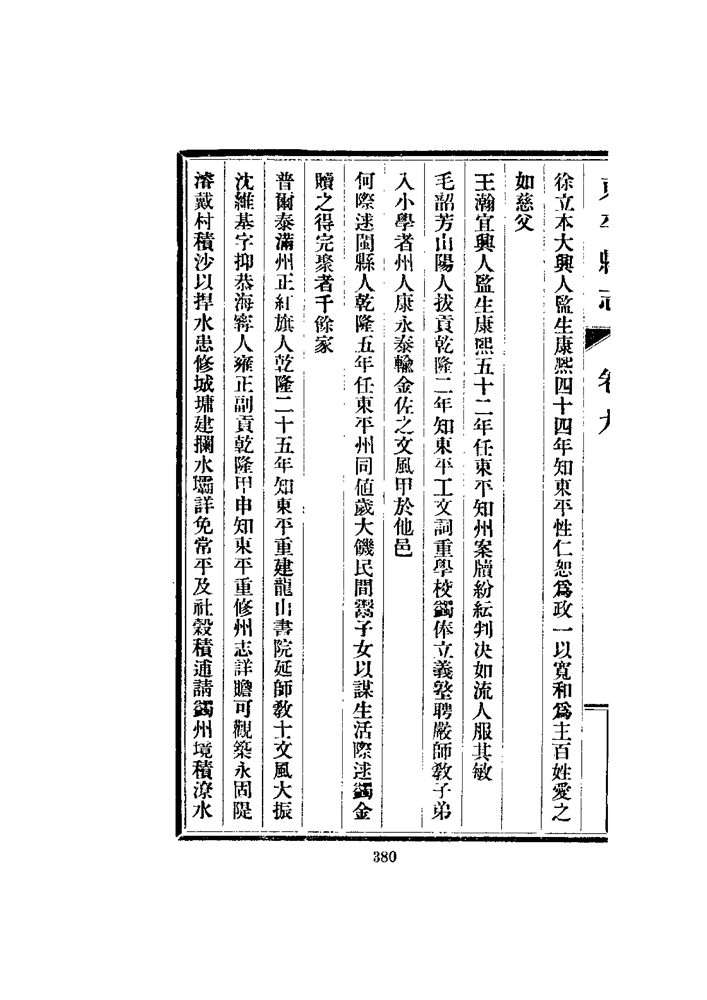 東平縣志 卷九
徐立本大興人監生康熙四十四年知東平性仁恕爲政一以寬和爲主百姓愛之
如慈父
王瀚宜興人監生康熙五十二年任東平知州案牘紛紜判决如流人服其敏
毛韶芳山陽人拔貢乾隆二年知東平工文詞重學校蠲俸立義塾聘嚴師敎子弟
入小學者州人康永泰輸金佐之文風甲於他邑
何際逑閩縣人乾隆五年任東平州同値歲大饑民間鬻子女以謀生活際逑蠲金
贖之得完聚者千餘家
普爾泰滿州正紅旗人乾隆二十五年知東平重建龍山書院延師敎士文風大振
沈維基字抑恭海寧人雍正副貢乾隆甲申知東平重修州志詳贍可觀築永固隄
濬戴村積沙以捍水患修城墉建攔水壩詳免常平及社穀積逋請蠲州境積潦水
380